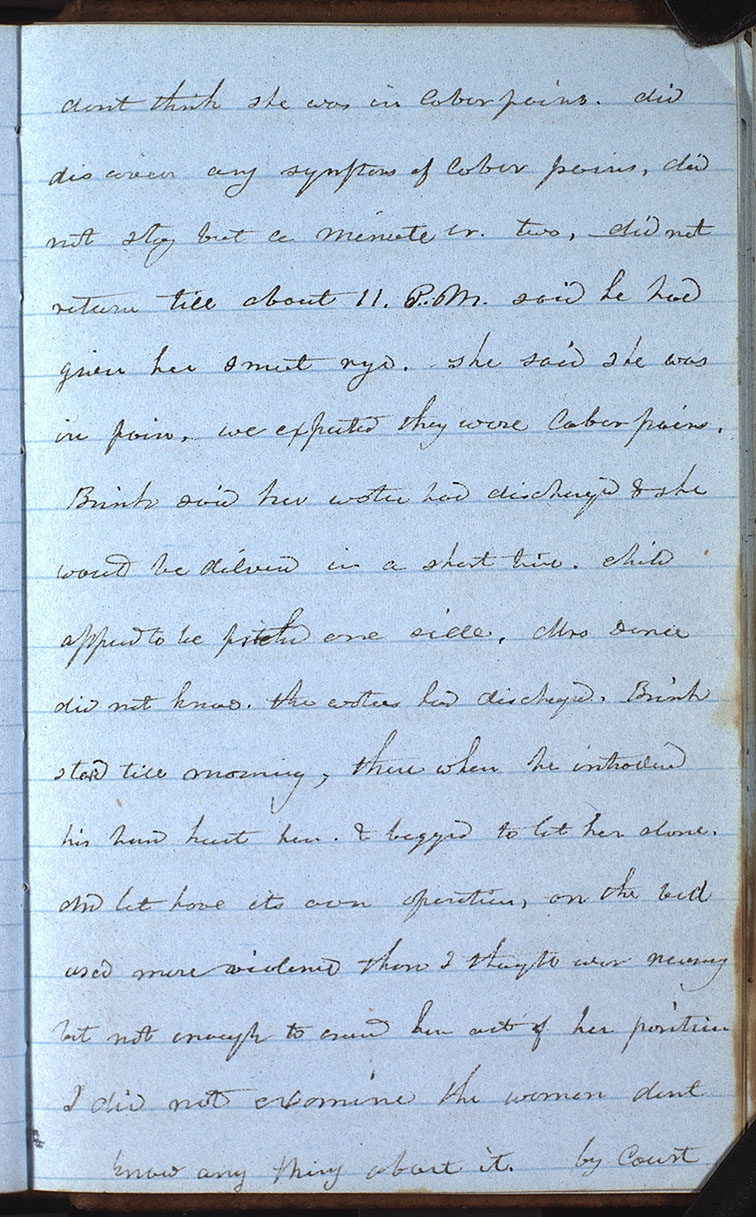 dont think she was in labor pains. did
discover any symptons of labor pains, did
not stay but a minute or two, did not
return till about 11. P.M. said he had
given her smut rye. she said she was
in pain, we expected they were labor pains.
Brink said her water had discharged & she
would be dilverd in a short time. child
appeard to be pitched one side, Mrs
did not know. the waters had discharged. Brink
staid till morning, there when he introduced
his hand hurt her. & begged to let her alone.
and let have its own operation, on the bed
used more violence than I thought was necessary
but not enough to crowd her out of her position
I did not examine the woman dont
know any thing about it. by Court